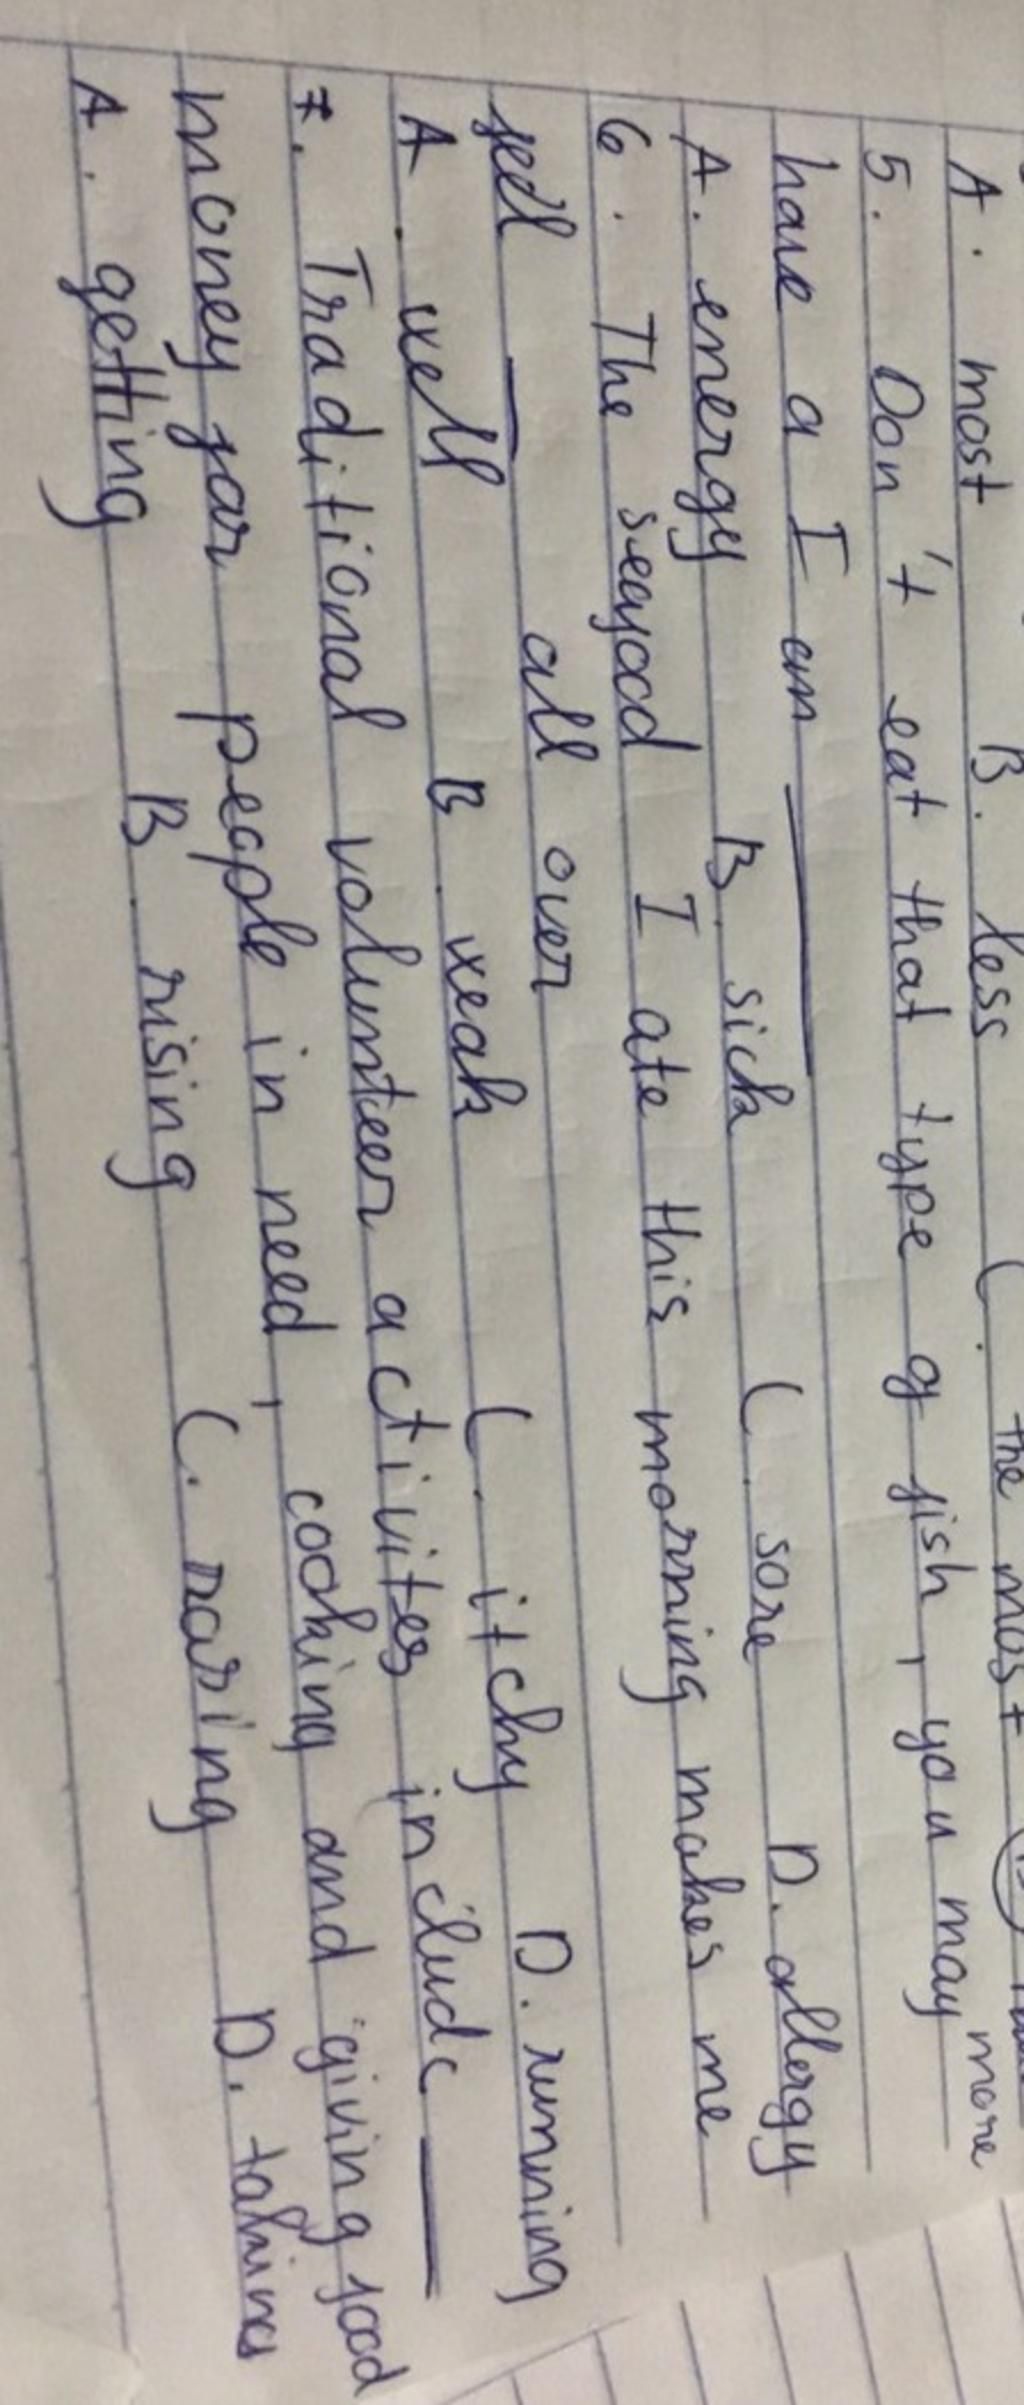 A. most B. less C. the most
more
5. Don't eat that type of fish, you may
have a I am ____
A. energy B. sick C. sore D. allergy
6. The seafood I ate this morning makes me
feel ____ all over
A. well B. weak C. itchy D. running
7. Traditional volunteer activites include ____
money for people in need, cooking and giving food
A. getting B. rising C. raising D. taking